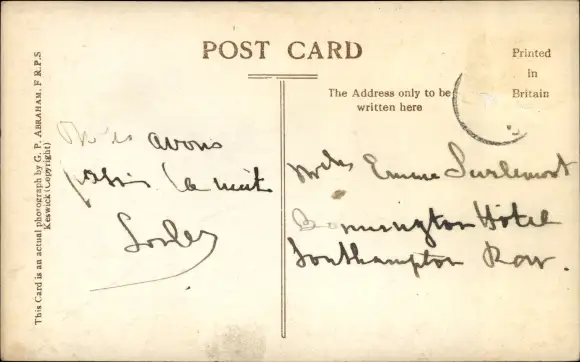 POST CARD
Printed
in
Britain
The Address only to be
written here
This Card is an actual photograph by G. P. ABRAHAM, F R.P.S
Keswick (Copyright)
avons
la nuit
Emma
Bonnington Hotel
Southampton Row.